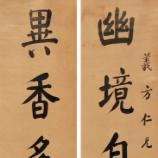 義方仁兄
幽境自
異香多